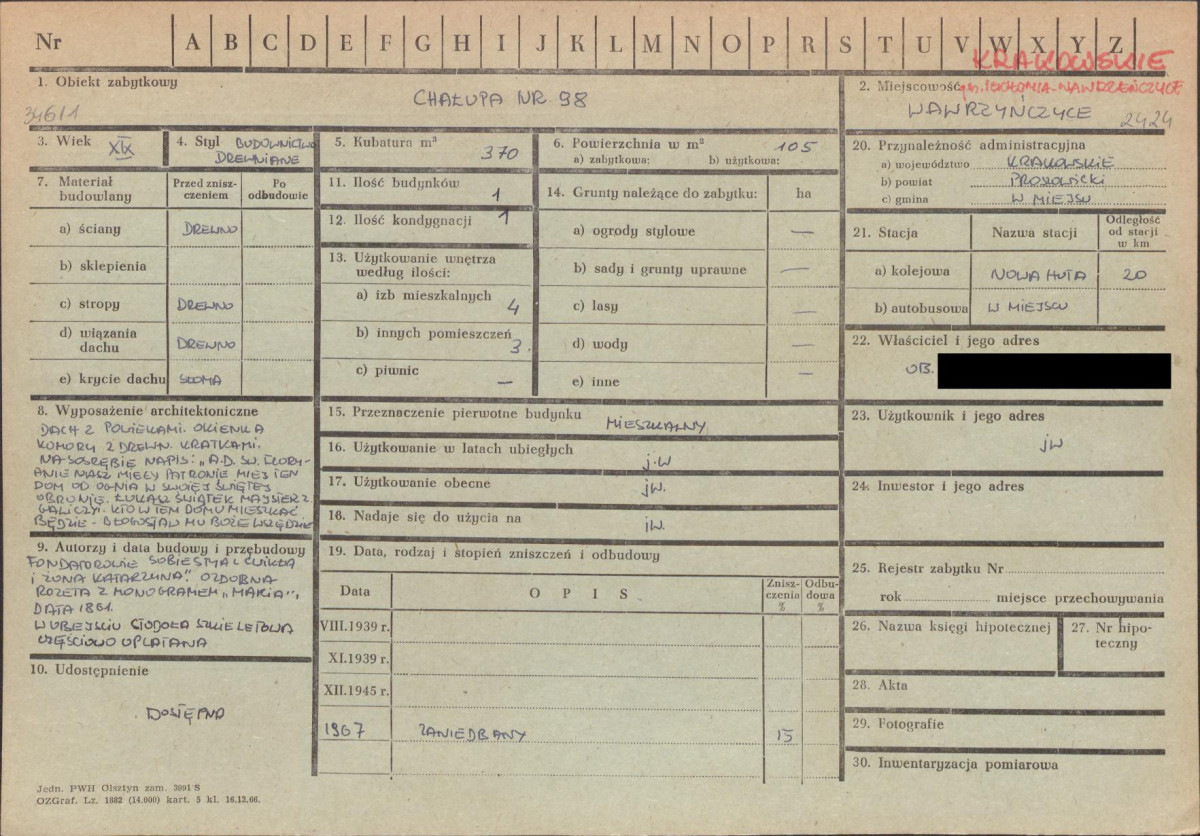 Nr A B C D E F G H I J K L M N O P R S T U V W X Y Z
KRAKOWSKIE
gm. IGOŁOMIA-WAWRZEŃCZYCE
1. Obiekt zabytkowy
CHAŁUPA NR 98
346/1
2. Miejscowość
WAWRZYŃCZYCE
2424
3. Wiek XIX
4. Styl BUDOWNICTWO
DREWNIANE
5. Kubatura m³
370
6. Powierzchnia w m² 105
a) zabytkowa: b) użytkowa:
7. Materiał budowlany
Przed zniszczeniem
Po odbudowie
a) ściany DREWNO
b) sklepienia
c) stropy DREWNO
d) wiązania dachu DREWNO
e) krycie dachu SŁOMA
8. Wyposażenie architektoniczne
DACH Z POWIEKAMI. OKIENKA
KOMORY Z DREWN. KRATKAMI.
NA SOSRĘBIE NAPIS: „A.D. ŚW. FLORY-
ANIE NASZ MIŁY PATRONIE MIEJ TEN
DOM OD OGNIA W SWOJEJ ŚWIĘTEJ
OBRONIE. ŁUKASZ ŚWIĄTEK MAJSIER Z
GALICZY. KTO W TEM DOMU MIESZKAĆ
BĘDZIE - BŁOGOSŁAW MU BOŻE WSZĘDZIE
9. Autorzy i data budowy i przebudowy
FONDATOROWIE SOBIESTYAŁ ĆWIKŁA
I ŻONA KATARZYNA". OZDOBNA
ROZETA Z MONOGRAMEM „MARIA",
DATA 1861.
W OBEJŚCIU STODOŁA SZKIELETOWA
CZĘŚCIOWO UPLATANA
10. Udostępnienie
DOSTĘPNA
11. Ilość budynków
1
12. Ilość kondygnacji 1
13. Użytkowanie wnętrza
według ilości:
a) izb mieszkalnych
4
b) innych pomieszczeń
3.
c) piwnic —
14. Grunty należące do zabytku: ha
a) ogrody stylowe —
b) sady i grunty uprawne —
c) lasy —
d) wody —
e) inne —
15. Przeznaczenie pierwotne budynku
MIESZKALNY
16. Użytkowanie w latach ubiegłych
j.w
17. Użytkowanie obecne jw.
18. Nadaje się do użycia na jw.
19. Data, rodzaj i stopień zniszczeń i odbudowy
Data
OPIS
Zniszczenia %
Odbudowa %
VIII.1939 r.
XI.1939 r.
XII.1945 r.
1967 ZANIEDBANY 15
20. Przynależność administracyjna
a) województwo KRAKOWSKIE
b) powiat PROSZOWICKI
c) gmina W MIEJSU
21. Stacja
Nazwa stacji
Odległość od stacji w km
a) kolejowa NOWA HUTA 20
b) autobusowa W MIEJSCU
22. Właściciel i jego adres
OB.
23. Użytkownik i jego adres
jw
24. Inwestor i jego adres
25. Rejestr zabytku Nr
rok miejsce przechowywania
26. Nazwa księgi hipotecznej
27. Nr hipo-
teczny
28. Akta
29. Fotografie
30. Inwentaryzacja pomiarowa
Jedn. PWH Olsztyn zam. 3991 S
OZGraf. Lz. 1882 (14.000) kart. 5 kl. 16.12.66.